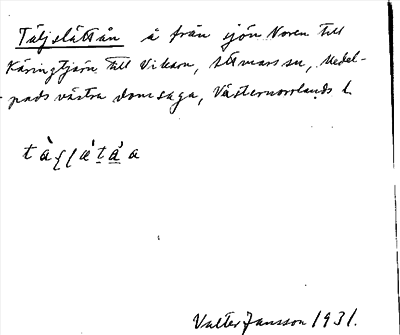 Täljslåttån å från sjön Noren till
Käringtjärn till Vikarn, Attmars sn, Medel-
pads västra domsaga, Västernorrlands l.
Valter Jansson 1931.